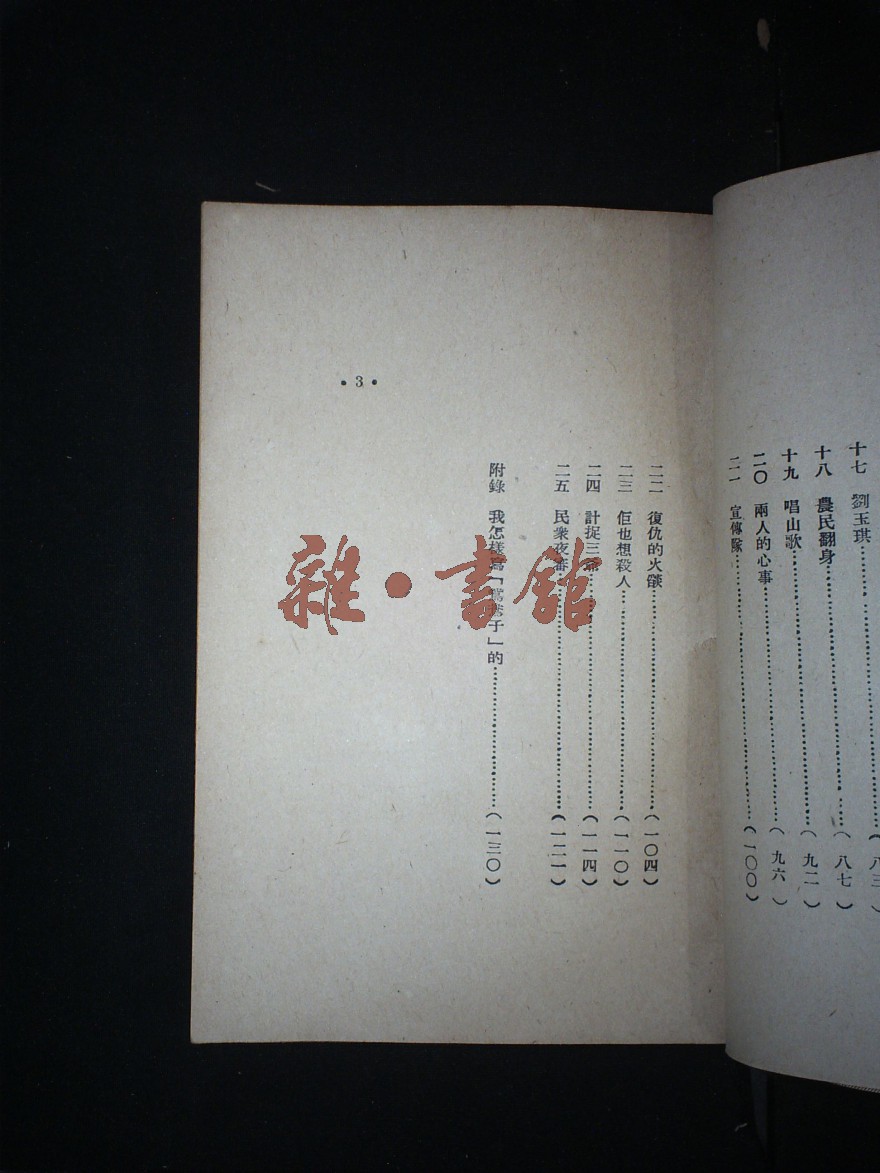 十七 劉玉琪……(八三)
十八 農民翻身……(八七)
十九 唱山歌……(九二)
二〇 兩人的心事……(九六)
二一 宣傳隊……(一〇〇)
二二 復仇的火燄……(一〇四)
二三 佢也想殺人……(一一〇)
二四 計捉三爺……(一一四)
二五 民衆夜審……(一二一)
附錄 我怎樣寫「鴛鴦子」的……(一三〇)
•3•
雜•書館